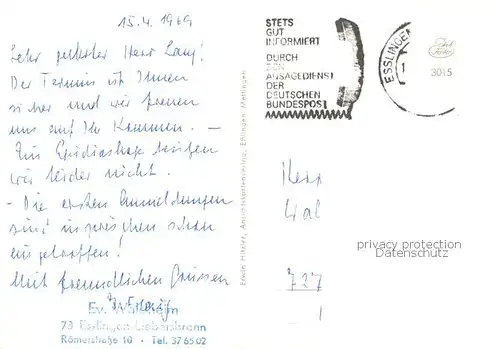 15.4.1969
Sehr geehrter Herr Lang!
Der Termin ist Ihnen
sicher und wir freuen
uns auf Ihr Kommen. —
Ein Epidiaskop besitzen
wir leider nicht.
- Die ersten Anmeldungen
sind inzwischen schon
eingetroffen!
Mit freundlichen Grüssen
Ev. Waldheim
73 Esslingen-Liebersbronn
Römerstraße 10 • Tel. 37 65 02
Erwin Hilzler, Ansichtskartenverlag, Eßlingen, Mettingen
STETS
GUT
INFORMIERT
DURCH
DEN
ANSAGEDIENST
DER
DEUTSCHEN
BUNDESPOST
ESSLINGEN
1
3015
Herr
727
privacy protection
Datenschutz